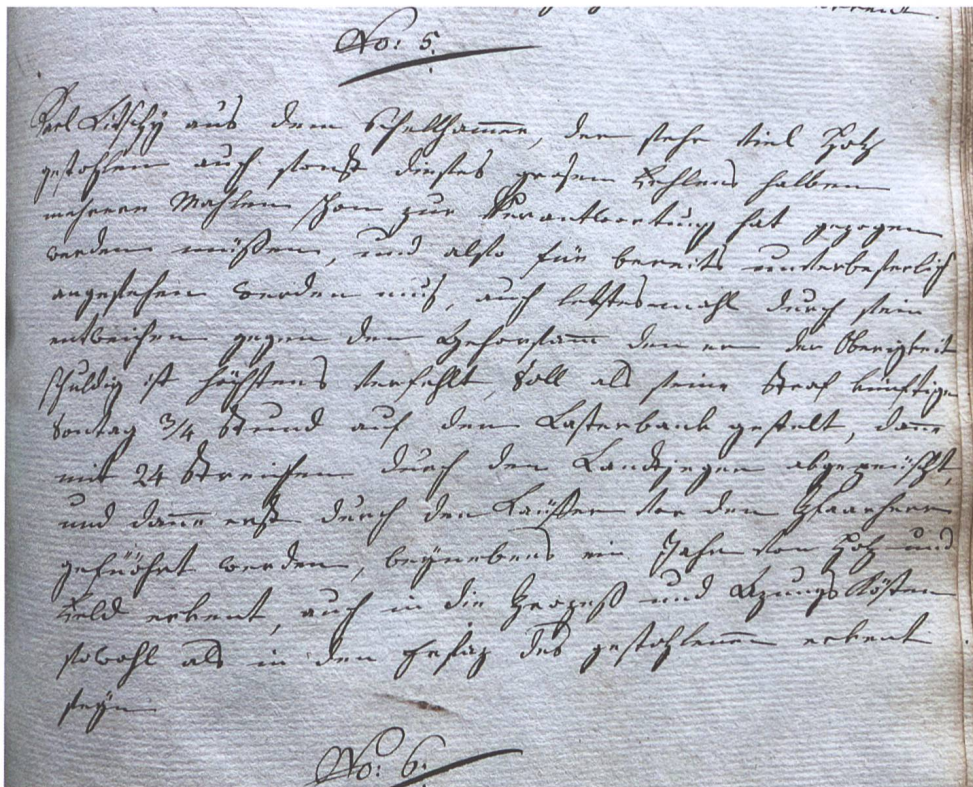 No: 5.
Karl Lüschÿ aus dem Schellhammer, der sehr viel Holz
gestohlen auch sonst dieses grosen Fehlens halben
mehrere Mahlen schon zur Verantwortung hat gezogen
werden müßen, und also für bereits unverbeserlich
angesehen werden muß, auch letstesmahl durch sein
entweichen gegen dem Gehorsam den er der Oberigkeit
schuldig ist höchstens verfehlt Soll als seine Straf künftige
Sontag 3/4 Stund auf den Lasterbank gestelt, dann
mit 24 Streichen durch den Landtjeger abgepeitscht,
und dann erst durch den Laüffer vor den Pfaarherr
gefüöhrt werden, beÿnebens ein Jahr von Holz und
Feld erkent, auch in die Prozeß und Azungs Kösten
sowohl als in den Ersaz des gestohlenen erkent
seÿn
No: 6: